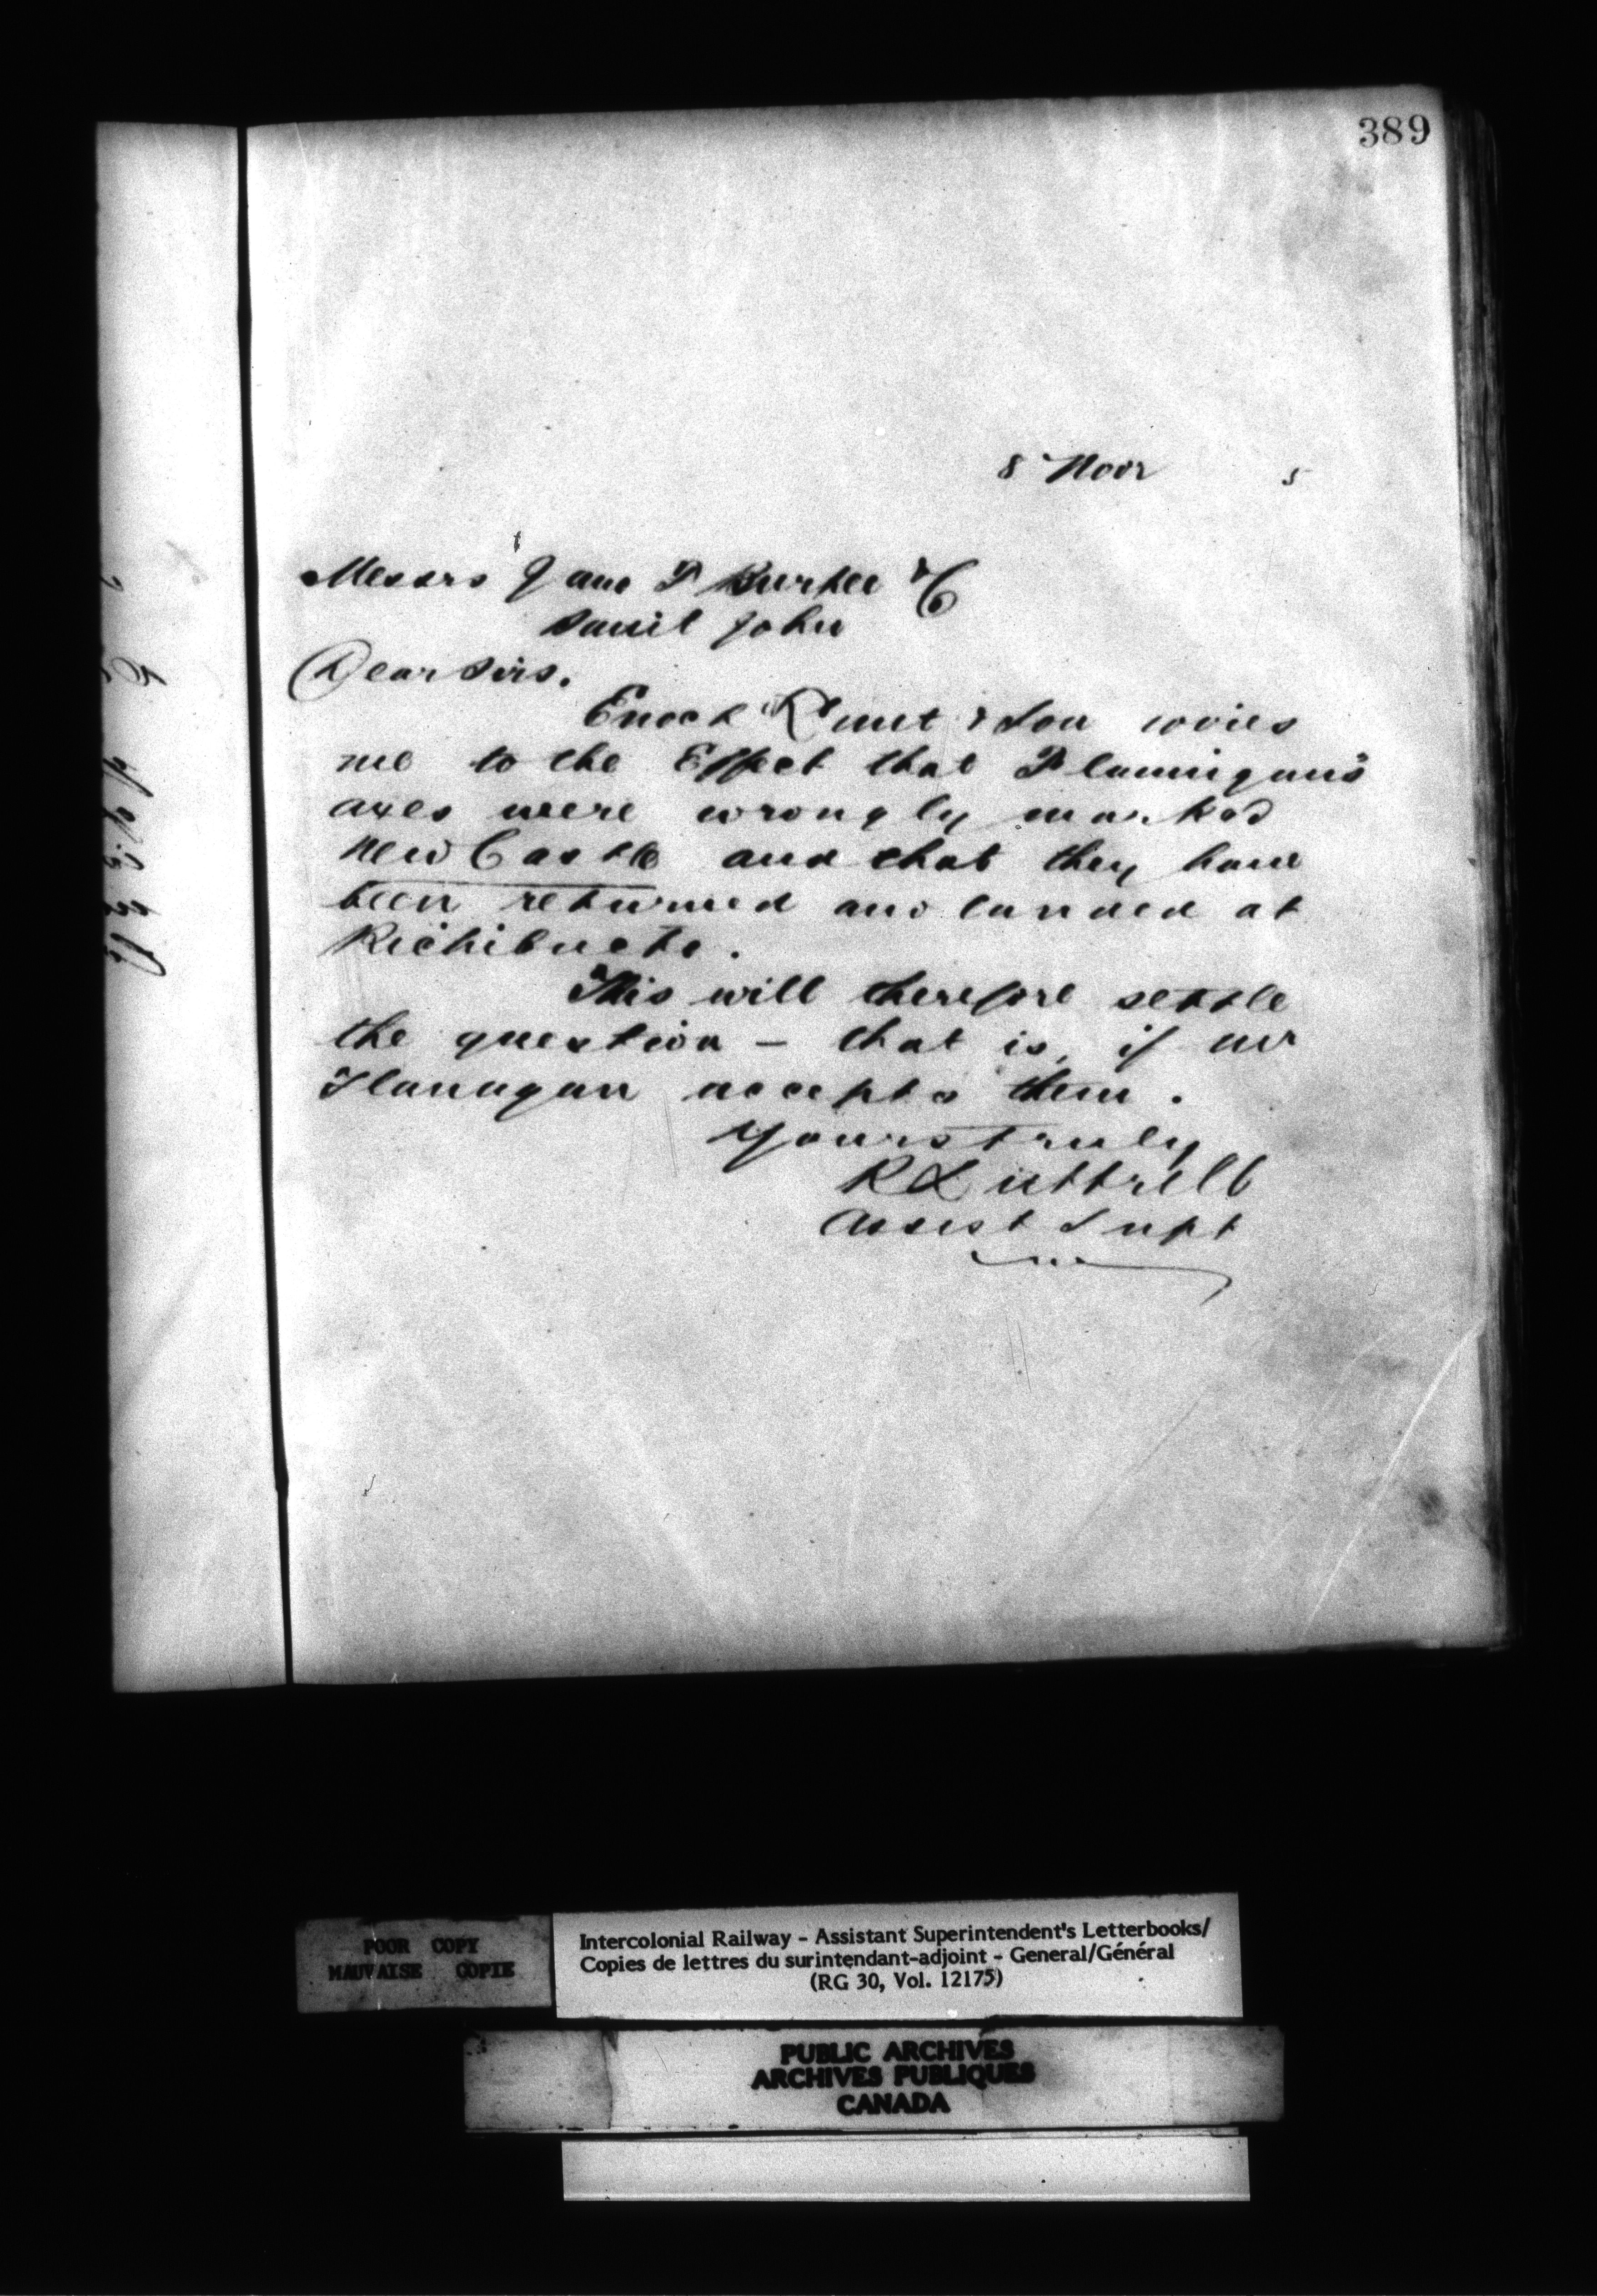 389
8 Novr 5
Messrs J and F Burpee & Co
Saint John
Dear Sirs.
Enoch Lunt & Son wires
me to the Effect that Flannigans
axes were wrongly marked
New Castle and that they have
been returned and landed at
Richibucto.
This will therefore settle
the question - that is, if Mr
Flanagan accepts them.
Yours truly
R Luttrell
Assist Supt
POOR COPY
MAUVAISE COPIE
Intercolonial Railway - Assistant Superintendent's Letterbooks/
Copies de lettres du surintendant-adjoint - General/Général
(RG 30, Vol. 12175)
PUBLIC ARCHIVES
ARCHIVES PUBLIQUES
CANADA